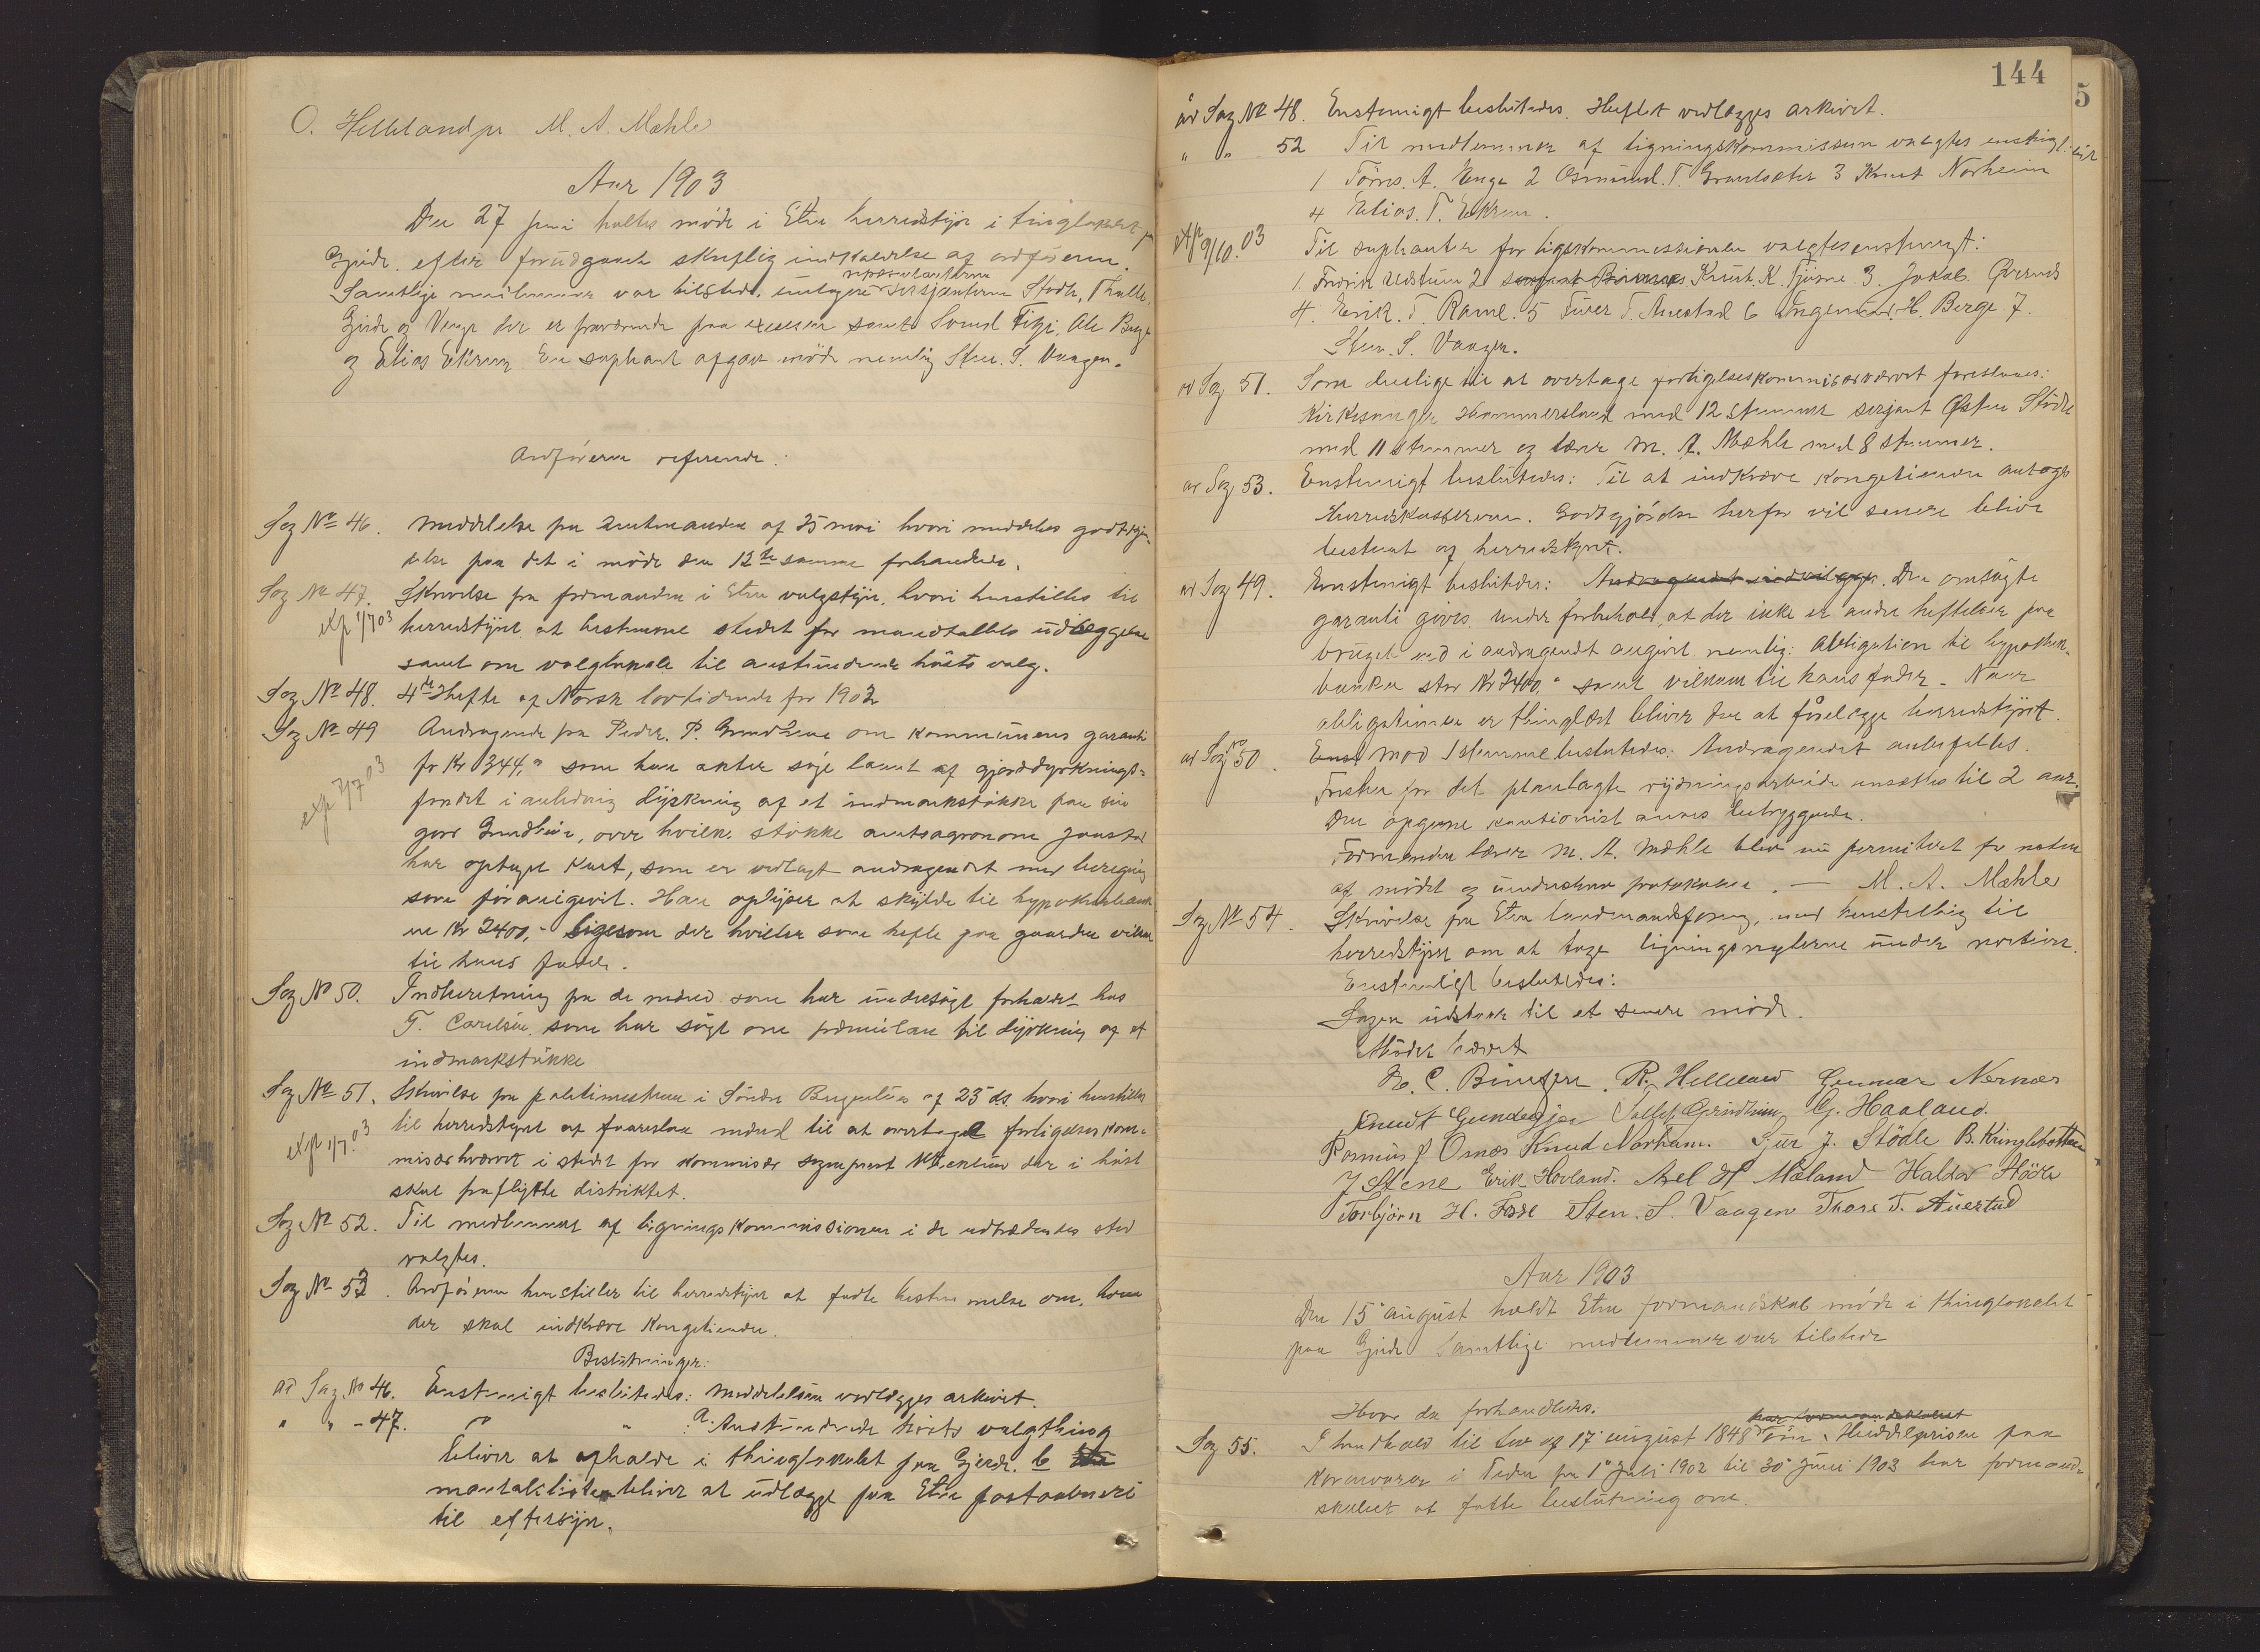 O. Helleland jr M. A. Mæhle
Aar 1903
Den 27 juni holtes møde i Etne herredstyre i tinglokalet paa
Gjerde efter forudgaaende skriftlig indkaldelse af ordføreren.
Samtlige medlemmer var tilstede, undtagen repræsentanterne sersjanterne Stødle, Tholle
Gjerde og Venge der er fraværende paa exersser samt Svend Fitje, Ole Berge
og Elias Ekren. En suplcant afgav møde nemlig Sten. S. Vaagen.
Ordføreren referende:
Sag No 46. Meddelelse fra Amtmanden af 25 mai hvori meddeles godkjen-
delse paa det i møde den 12te samme forhandlede.
Sag No 47. Skrivelse fra formanden i Etne valgstyre, hvori henstilles til
exp 1/7 03 herredstyret at bestemme stedet for mandtallets udlæggelse
samt om valglokale til anstundende høsts valg.
Sag No 48. 4de Hefte af Norsk lovtidende for 1902
Sag No 49 Andragende fra Peder. P. Grindheim om kommunens garanti
for Kr 344,- som han akter søge laant af jorddyrknings-
exp 1/7 03 fondet i anledning dyrkning af et indmarkstøkke paa sin
gaard Grindheim, over hvilke støkke amtsagronom Jaastad
har optaget kart, som er vedlagt andragendet med beregning
som foran angivet. Han oplyser at skylde til hypothekbank-
en Kr 2400,- ligesom der hviler som hefte paa gaarden vilkaar
til hans fader.
Sag No 50. Indberetning fra de mænd som har undersøgt forholdet hos
T. Carlsen, som har søgt om præmielaan til dyrkning af et
indmarkstøkke
Sag No 51. Skrivelse fra politimesteren i Søndre Bergenhus af 23 ds. hvori henstilles
til herredstyret at foreslaa mænd til at overtage forligelseskom-
exp 1/7. 03 misærhvervet i stedet for kommisær sogneprest der i høst
skal fraflytte distriktet.
Sag No 52. Til medlemmer af ligningskommissionen i de udtrædendes sted
valgtes.
Sag No 53. Ordføreren henstiller til herredstyret at fatte bestemmelse om, hvem
der skal indkræve Kongetienden.
Beslutninger:
ad Sag No 46. Enstemigt besluttedes: Meddelelsen vedlægges arkivet.
" " - 47. " " : a. Anstundende høsts valgthing
bliver at afholde i thinglokalet paa Gjerde. b
mantalslisten bliver at udlægge paa Etne postaabneri
til eftersyn.
144
5
ad Sag No 48. Enstemigt besluttedes. Heftet vedlægges arkivet.
" " 52 Til medlemmer af ligningskommissionen valgtes enstemigt
1 Tørres. A. Enge 2 Osmund. T. Grautsæter 3 Knut Norheim
4 Elias. T. Ekren.
exp 9/10. 03 Til suplcanter for ligskommissionen valgtes enstemigt:
1. Fredrik 2 Knut. K. Tjørne 3. Jakob. Øvernes
4. Erik. T. Rame. 5 Siver T. Auestad 6 Ingemar. H. Berge 7.
Sten. S. Vaagen.
ad Sag 51. Som duelige til at overtage forligelseskommisærværvet foreslaaes:
Kirkesanger Hammersland med 12 stemmer serjant Østen Stødle
med 11 stemmer og lærer M. A. Mæhle med 8 stemmer.
ad Sag 53. Enstemigt besluttedes: Til at indkræve Kongetienden antoges
Herredskassereren. Godtgjørelse herfor vil senere blive
bestemt af herredstyret.
ad Sag 49. Enstemigt besluttedes: Andragendet indvilges. Den omsøgte
garanti gives under forbehold, at der ikke er andre heftelser paa
bruget end i andragendet angivet nemlig: Obligation til hypothek-
banken stor Kr 2400,- samt vilkaar til hans fader. Naar
obligationen er thinglæst bliver den at forelægge herredstyret.
ad Sag No 50. Enst mod 1 stemme besluttedes: Andragendet anbefalles.
Fristen for det planlagte rydningsarbeide ansættes til 2 aar.
Den opgivne kautionist ansees betryggende.
Formanden lærer M. A. Mæhle blev nu permiteret for resten
af mødet og underskrev protokollen. — M. A. Mæhle
Sag No 54. Skrivelse fra Etne landmandsforening, med henstelling til
herredstyret om at tage ligningsreglerne under revition.
Enstemigt besluttedes:
Sagen udstaar til et senere møde.
Mødet hævet
R. Helleland Gunnar Nernæs
Knudt Gundegjer Grindheim G. Haaland.
Rasmus J Omos Knud Norheim. Siur J. Stødle B. Kringlebotten
J Stene Erik Hovland. Axel H Mæland Haldor Stødle
Torbjørn H. Frøde Sten. S. Vaagen Thore T. Auestad
Aar 1903
Den 15 august holdt Etne formandskab møde i thinglokalet
paa Gjerde Samtlige medlemmer var tilstede
Hvor da forhandledes:
Sag 55. I henhold til lov af 17 august 1848 om Middelprisen paa
Kornvarer i Tiden fra 1ste Juli 1902 til 30te Juni 1903 har formand-
skabet at fatte beslutning om.